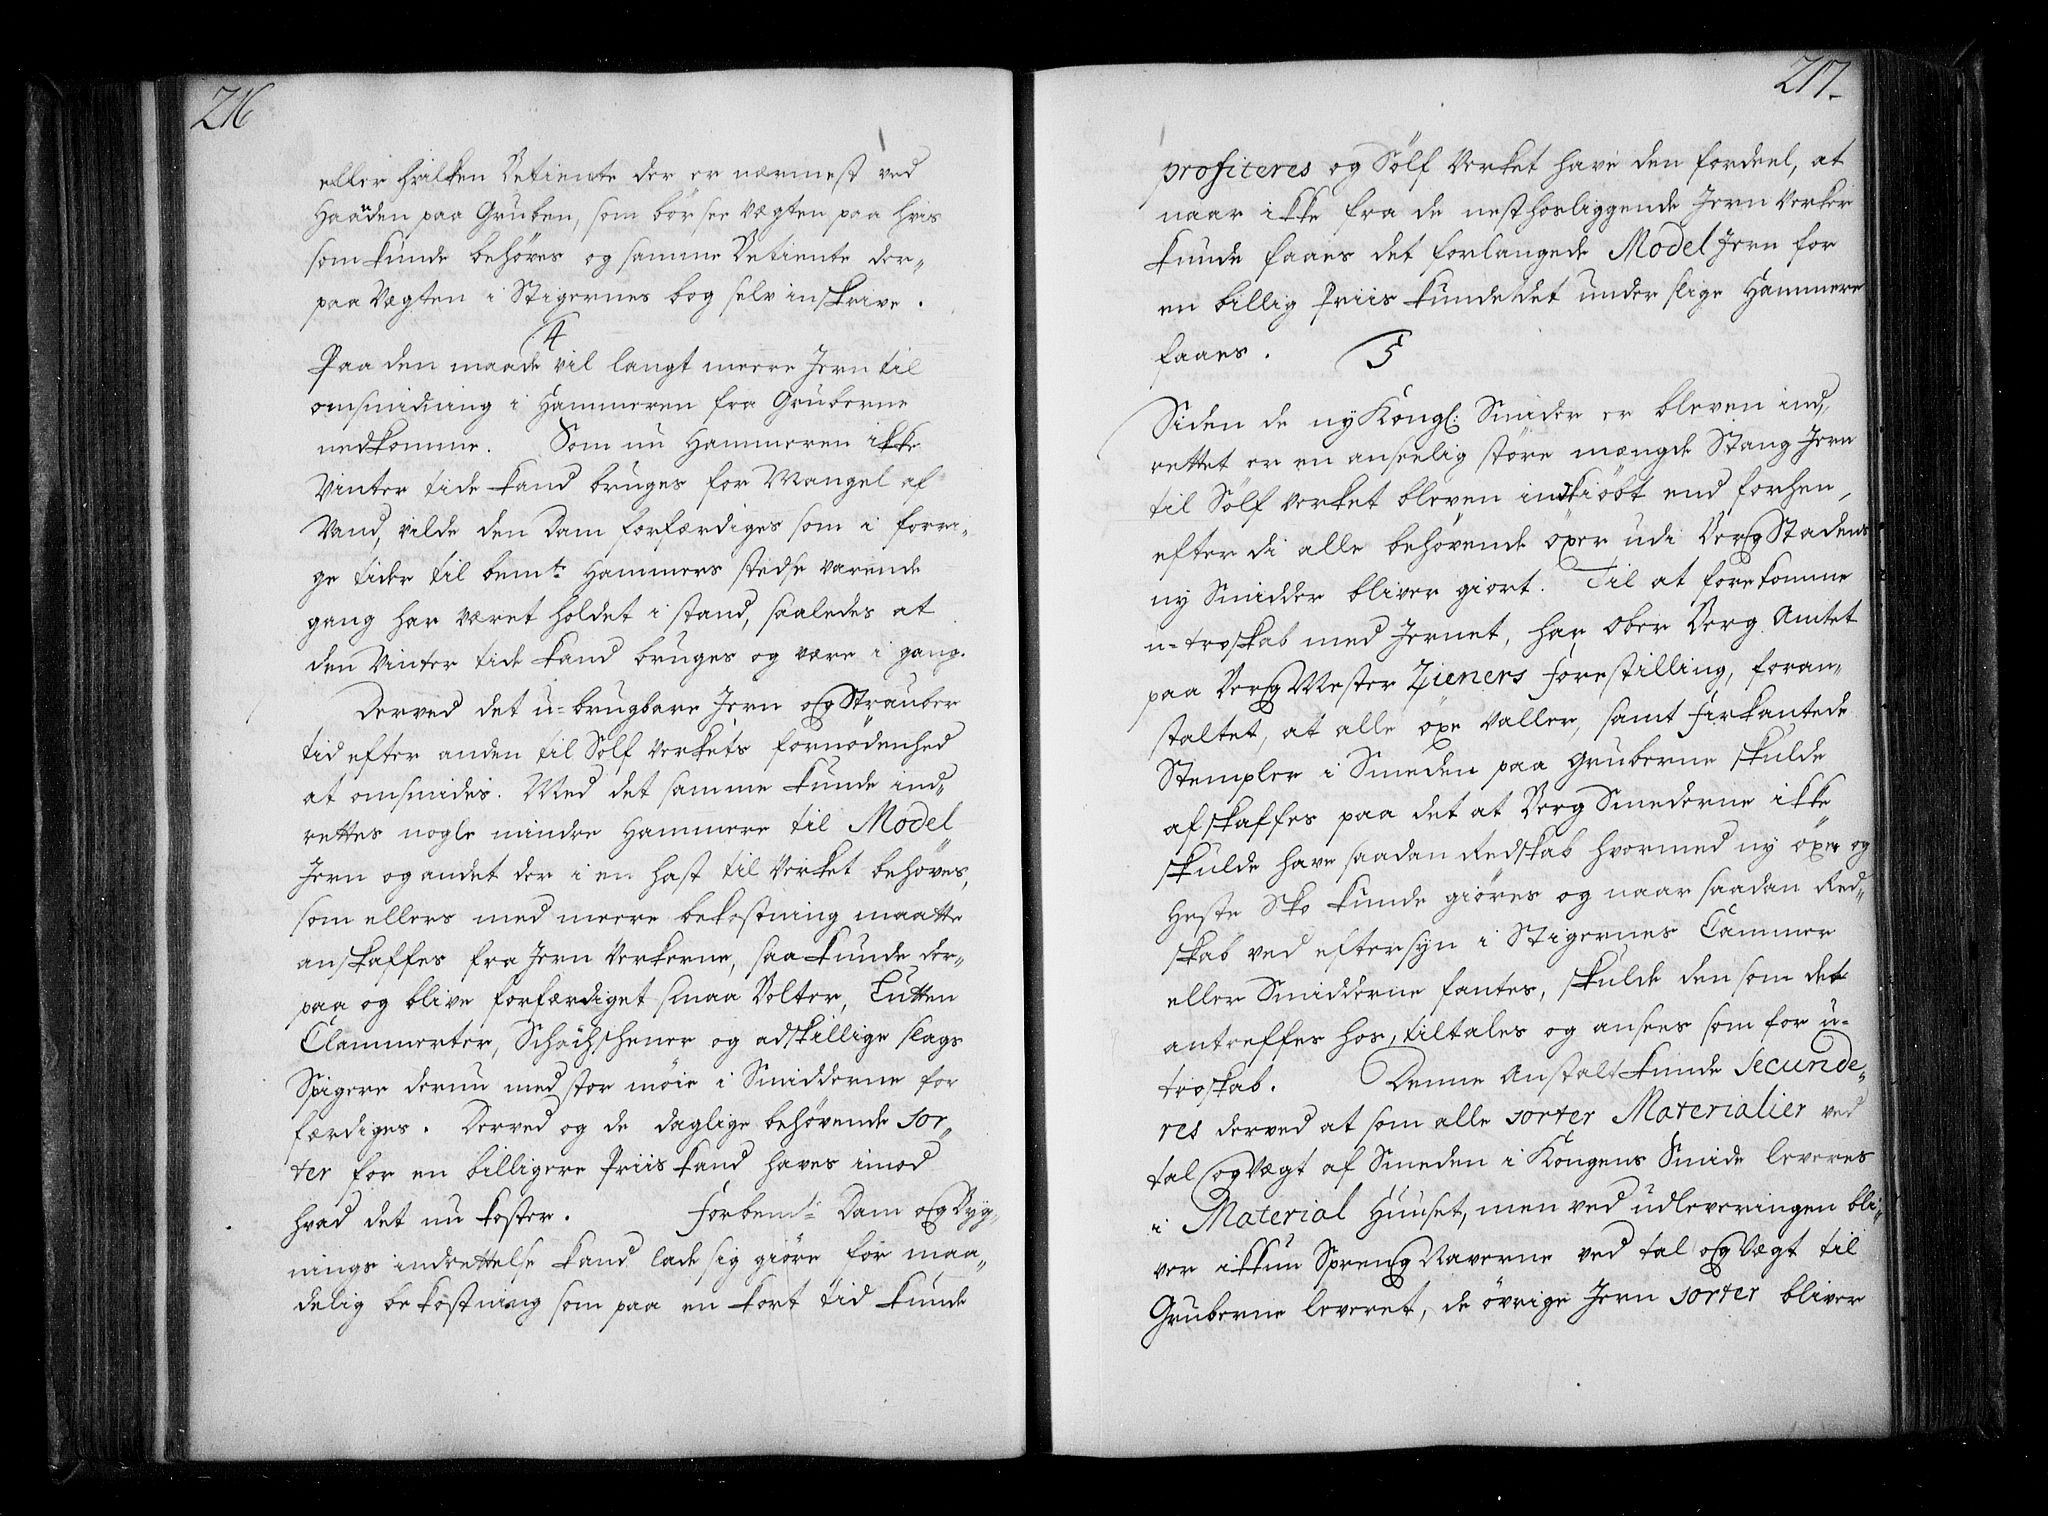 216
eller hvilken Betiente der er nærmest ved
Haanden paa Gruben, som bör see Vægten paa hvis
som kunde behöves og samme Betiente der„
paa Vægten i Stigernes bog selv inskrive.
4
Paa den maade vil langt meere Jern til
omsmidning i Hammeren fra Gruberne
nedkomme. Som nu Hammeren ikke
Vinter tide kand bruges for Mangel af
Vand, vilde den Dam forfærdiges som i forri„
ge tider til bemte Hammers stedse varende
gang har været holdet i stand, saaledes at
den Vinter tide kand bruges og være i gang.
Derved det u-brugbare Jern og Strauber
tid efter anden til Sölf Verkets fornödenhed
at omsmides. Med det samme kunde ind„
rettes nogle mindre Hammere til Model
Jern og andet der i en hast til Verket behöves,
som ellers med meere bekostning maatte
anskaffes fra Jern Verkerne, saa kunde der„
paa og blive forfærdiget smaa Bolter, Tutten
Clammerter, Schachschener og adskillige slags
Spigere der nu med stor möie i Smidderne for
færdiges. Derved og de daglige behövende sor„
ter for en billigere Priis kand haves imod
hvad det nu koster. Forbemte Dam og Byg„
nings indrettelse kand lade sig giöre for maa„
delig bekostning som paa en kort tid kunde
217
profiteres og Sölf Verket have den fordeel, at
naar ikke fra de nesthosliggende Jern Verker
kunde faaes det forlangede Model Jern for
en billig Priis kunde det under slige Hammere
faaes.
5
Siden de ny Kongl: Smider er bleven ind„
rettet er en anseelig störe mængde Stang Jern
til Sölf Verket bleven indkiöbt end forhen,
efterdi alle behövende öxer udi Berg Stadens
ny Smidder bliver giort. Til at forekomme
u-troskab med Jernet, har Ober Berg Amtet
paa Berg Mester Zieners Forestilling, foran„
staltet, at alle öxe Valler, samt Firkantede
Stempler i Smeden paa Gruberne skulde
afskaffes paa det at Berg Smederne ikke
skulde have saadan Redskab hvormed ny öxer og
Heste Sko kunde giöres og naar saadan Red„
skab ved eftersyn i Stigernes Cammer
eller Smidderne fantes, skulde den som det
antreffes hos, tiltales og ansees som for u-
troskab. Denne Anstalt kunde Secunde„
res derved at som alle sorter Materialier ved
tal og Vægt af Smeden i Kongens Smide leveres
i Material Huuset, men ved udleveringen bli„
ver ikkun Spreng Naverne ved tal og Vægt til
Gruberne leveret, de övrige Jern sorter bliver